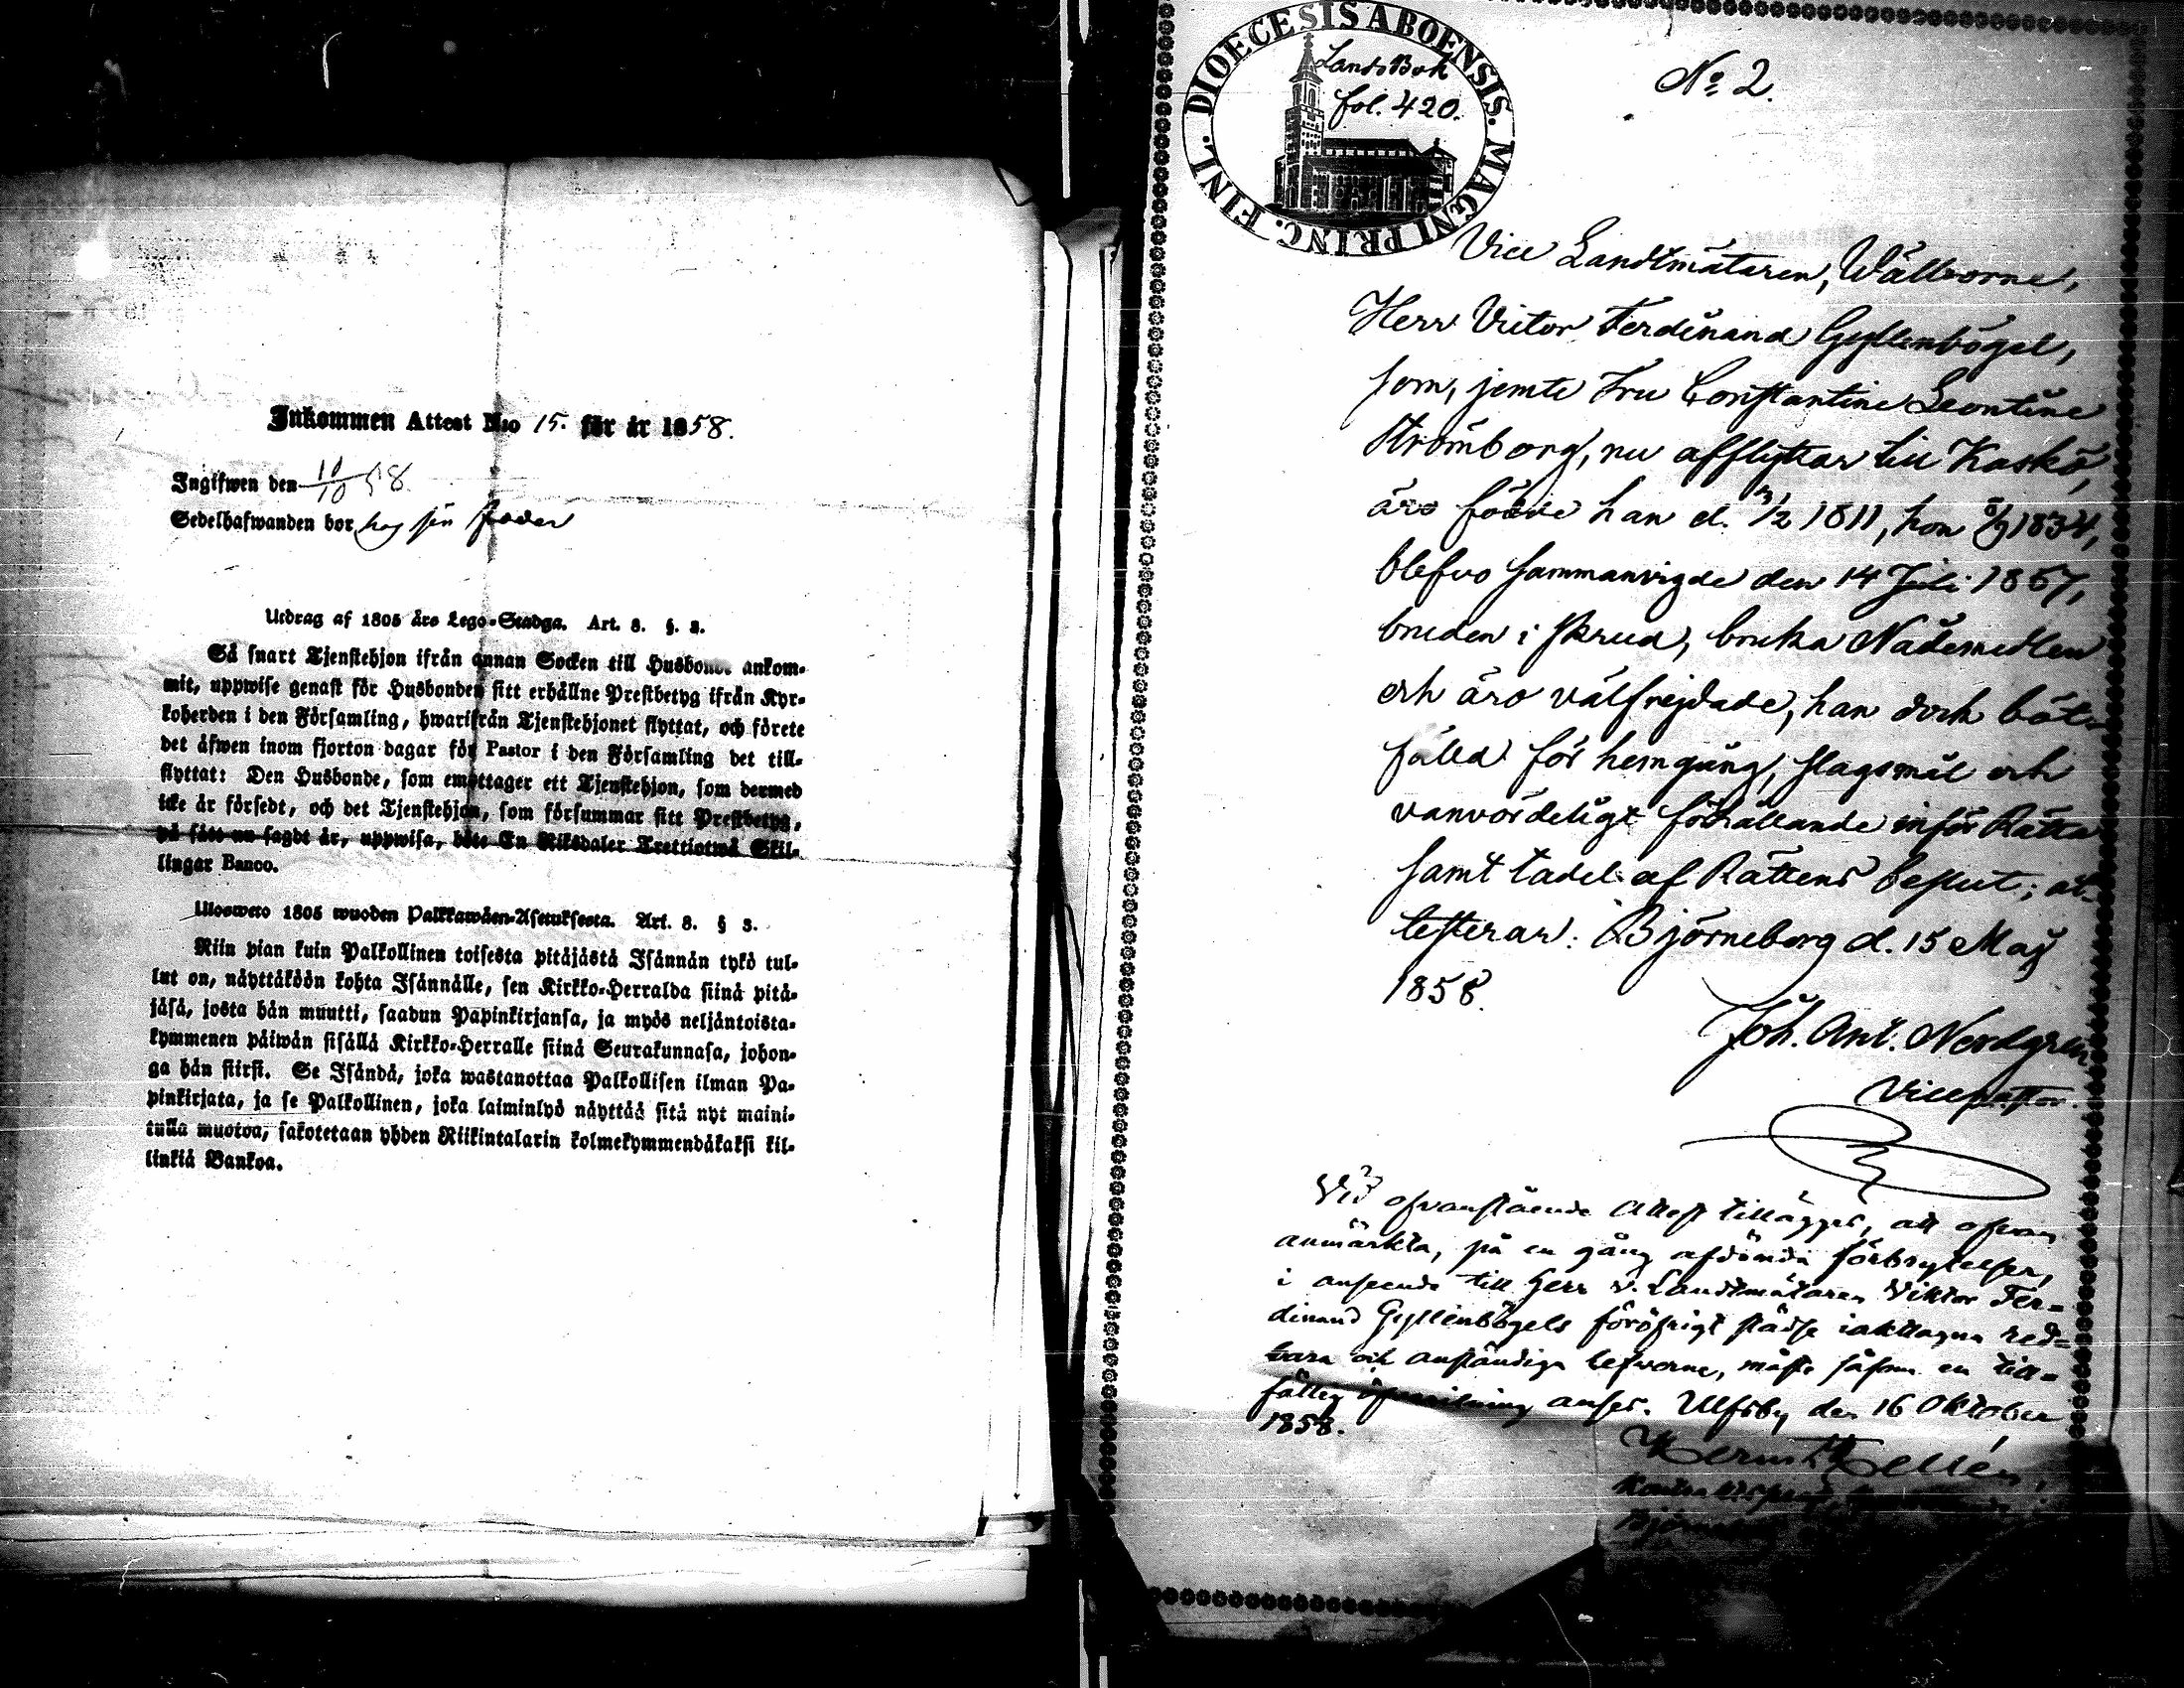 Inkommen Attest N:o 15. för år 1858.
Ingifwen den 10/10 58
Sedelhafwanden bor hos sin
Utdrag af 1805 års Lego-Stadga. Art. 8. §. 3.
Så snart Tjenstehjon ifrån annan Socken till Husbonde ankom-
mit, uppwise genast för Husbonden sitt erhållne Prestbetyg ifrån Kyr-
koherden i den Församling, hwarifrån Tjenstehjonet flyttat, och förete
det äfwen inom fjorton dagar för Pastor i den Församling det till-
flyttat: Den Husbonde, som emottager ett Tjenstehjon, som dermed
icke är försedt, och det Tjenstehjon, som försummar sitt Prestbetyg,
på sätt nu sagdt är, uppwisa, böte En Riksdaler Trettiotwå Skil-
lingar Banco.
Uloswето 1805 wuoden Palkkawäen-Asetuksesta. Art. 8. § 3.
Niin pian kuin Palkollinen toisesta pitäjästä Isännän tykö tul-
lut on, näyttäköön kohta Isännälle, sen Kirkko-Herralda siinä pitä-
jäsä, josta hän muutti, saadun Papinkirjansa, ja myös neljäntoista-
kymmenen päiwän sisällä Kirkko-Herralle siinä Seurakunnasa, johon-
ga hän siirsi. Se Isändä, joka wastanottaa Palkollisen ilman Pa-
pinkirjata, ja se Palkollinen, joka laiminlyö näyttää sitä nyt maini-
tulla muotoa, sakotetaan yhden Riikintalarin kolmekymmendäkaksi kil-
linkiä Bankoa.
DIOECESIS ABOENSIS. MAGNI PRINC. FINL.
Lands Bok
fol. 420.
No 2.
Vice Landtmätaren, Wälborne,
Herr Victor Ferdinand Gyllenbögel,
som, jemte Fru Constantine Leontine
Strömborg, nu afflyttar till Kaskö,
äro födde han d. 3/2 1811, hon 5/9 1834,
blefvo sammanvigde den 14 Juli 1857,
bruden i skrud, bruka Nådemedlen
och äro välfrejdade, han dock böt-
fälld för hemgång, slagsmål och
vanvördeligt förhållande inför Rätta
samt tadel af Rättens beslut; at-
testerar. Björneborg d. 15 Maj
1858.
Joh. Ant. Nordgren
Vicepastor.
Vid ofvanstående Attest tillägges, att ofvan
anmärkta, på en gång afdömda förbrytelser,
i anseende till Herr v. Landtmätaren Viktor Fer-
dinand Gyllenbögels föröfrigt städse iakttagna red-
bara och anständiga lefverne, måste såsom en till-
fällig anses. Ulfsby den 16 Oktober
1858.